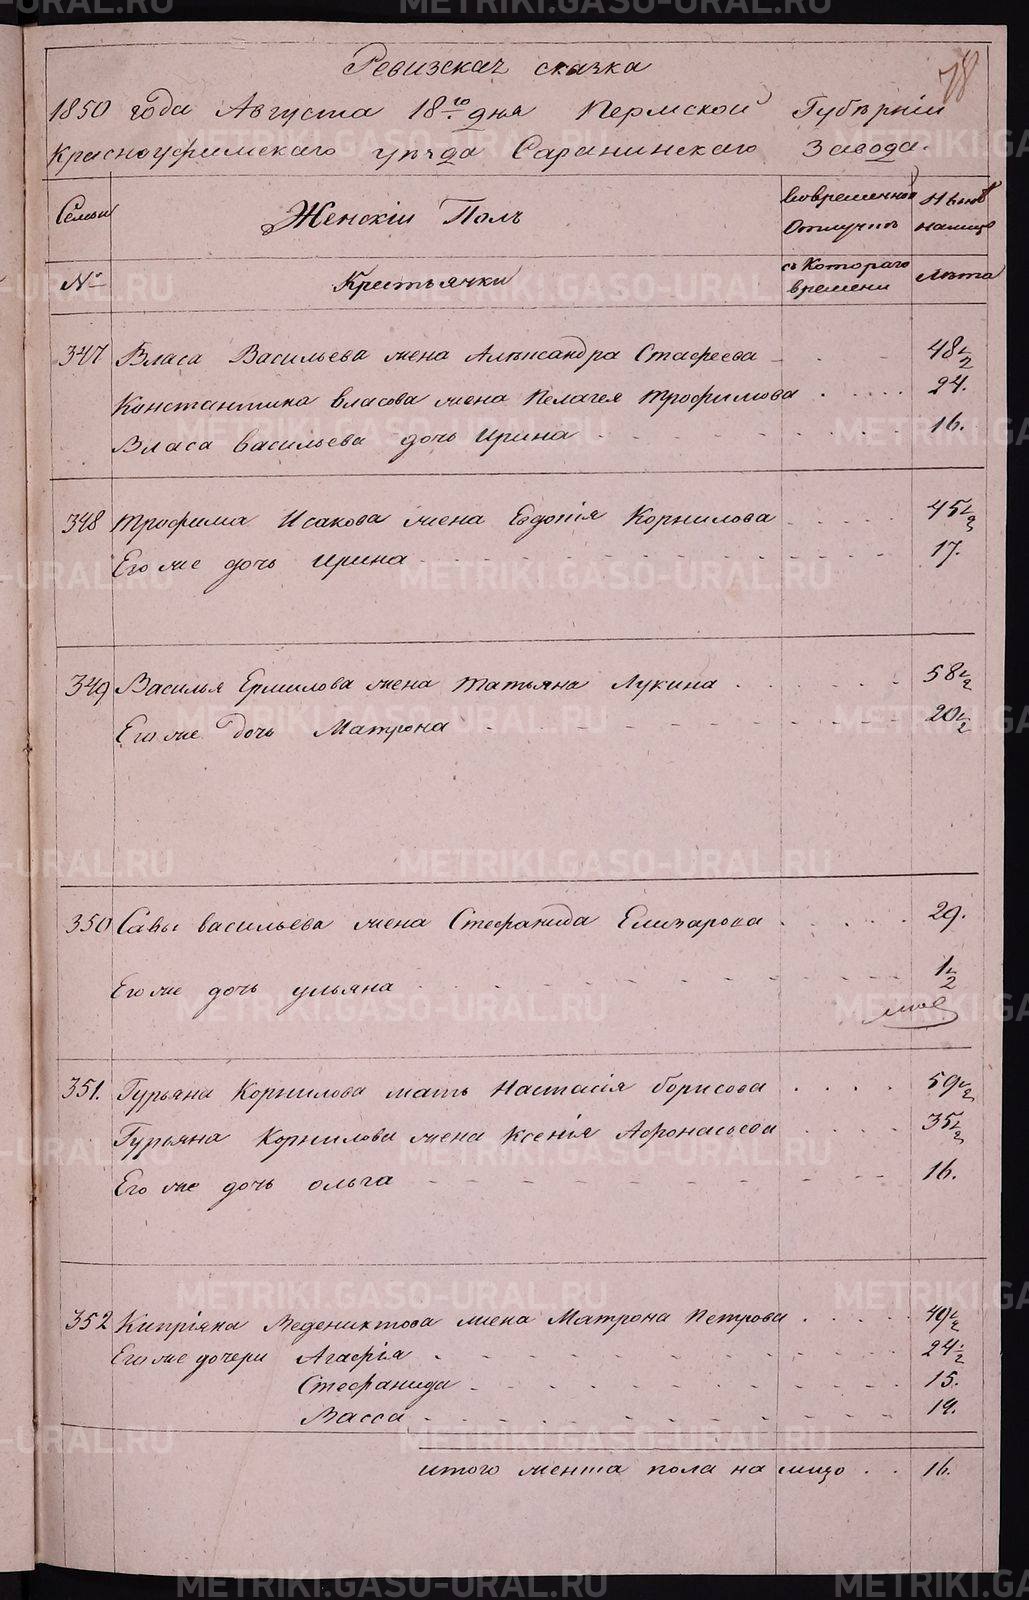 Ревизская сказка
78
1850 года Августа 18го дня Пермской Губѣрнiи
Красноуфимскаго уѣзда Саранинскаго Завода.
Семьи
Женскiй Полъ
Вовременной Отлучкѣ
Нынѣ налицо
№
Крестьянки
съ Котораго времени
Лѣта
347 Власа Васильева жена Алѣксандра Стафеева 48 1/2
Константина власова жена Пелагея Трофимова 24.
Власа васильева дочь Ирина 16.
348 Трофима Исакова жена Евдокiя Корнилова 45 1/2
Его же дочь Ирина 17.
349 Василья Ермилова жена Татьяна Лукина 58 1/2
Его же дочь Матрона 20 1/2
350 Савы васильева жена Стефанида Елизарова 29.
Его же дочь ульяна 1/2
351. Гурьяна Корнилова мать Настасiя борисова 59 1/2
Гурьяна Корнилова жена Ксенiя Афонасьева 35 1/2
Его же дочь ольга 16.
352 Кипрiяна Ведениктова жена Матрона Петрова 49 1/2
Его же дочери Агафiя 24 1/2
Стефанида 15.
Васса 19.
итого женска пола на лицо 16.
METRIKI.GASO-URAL.RU